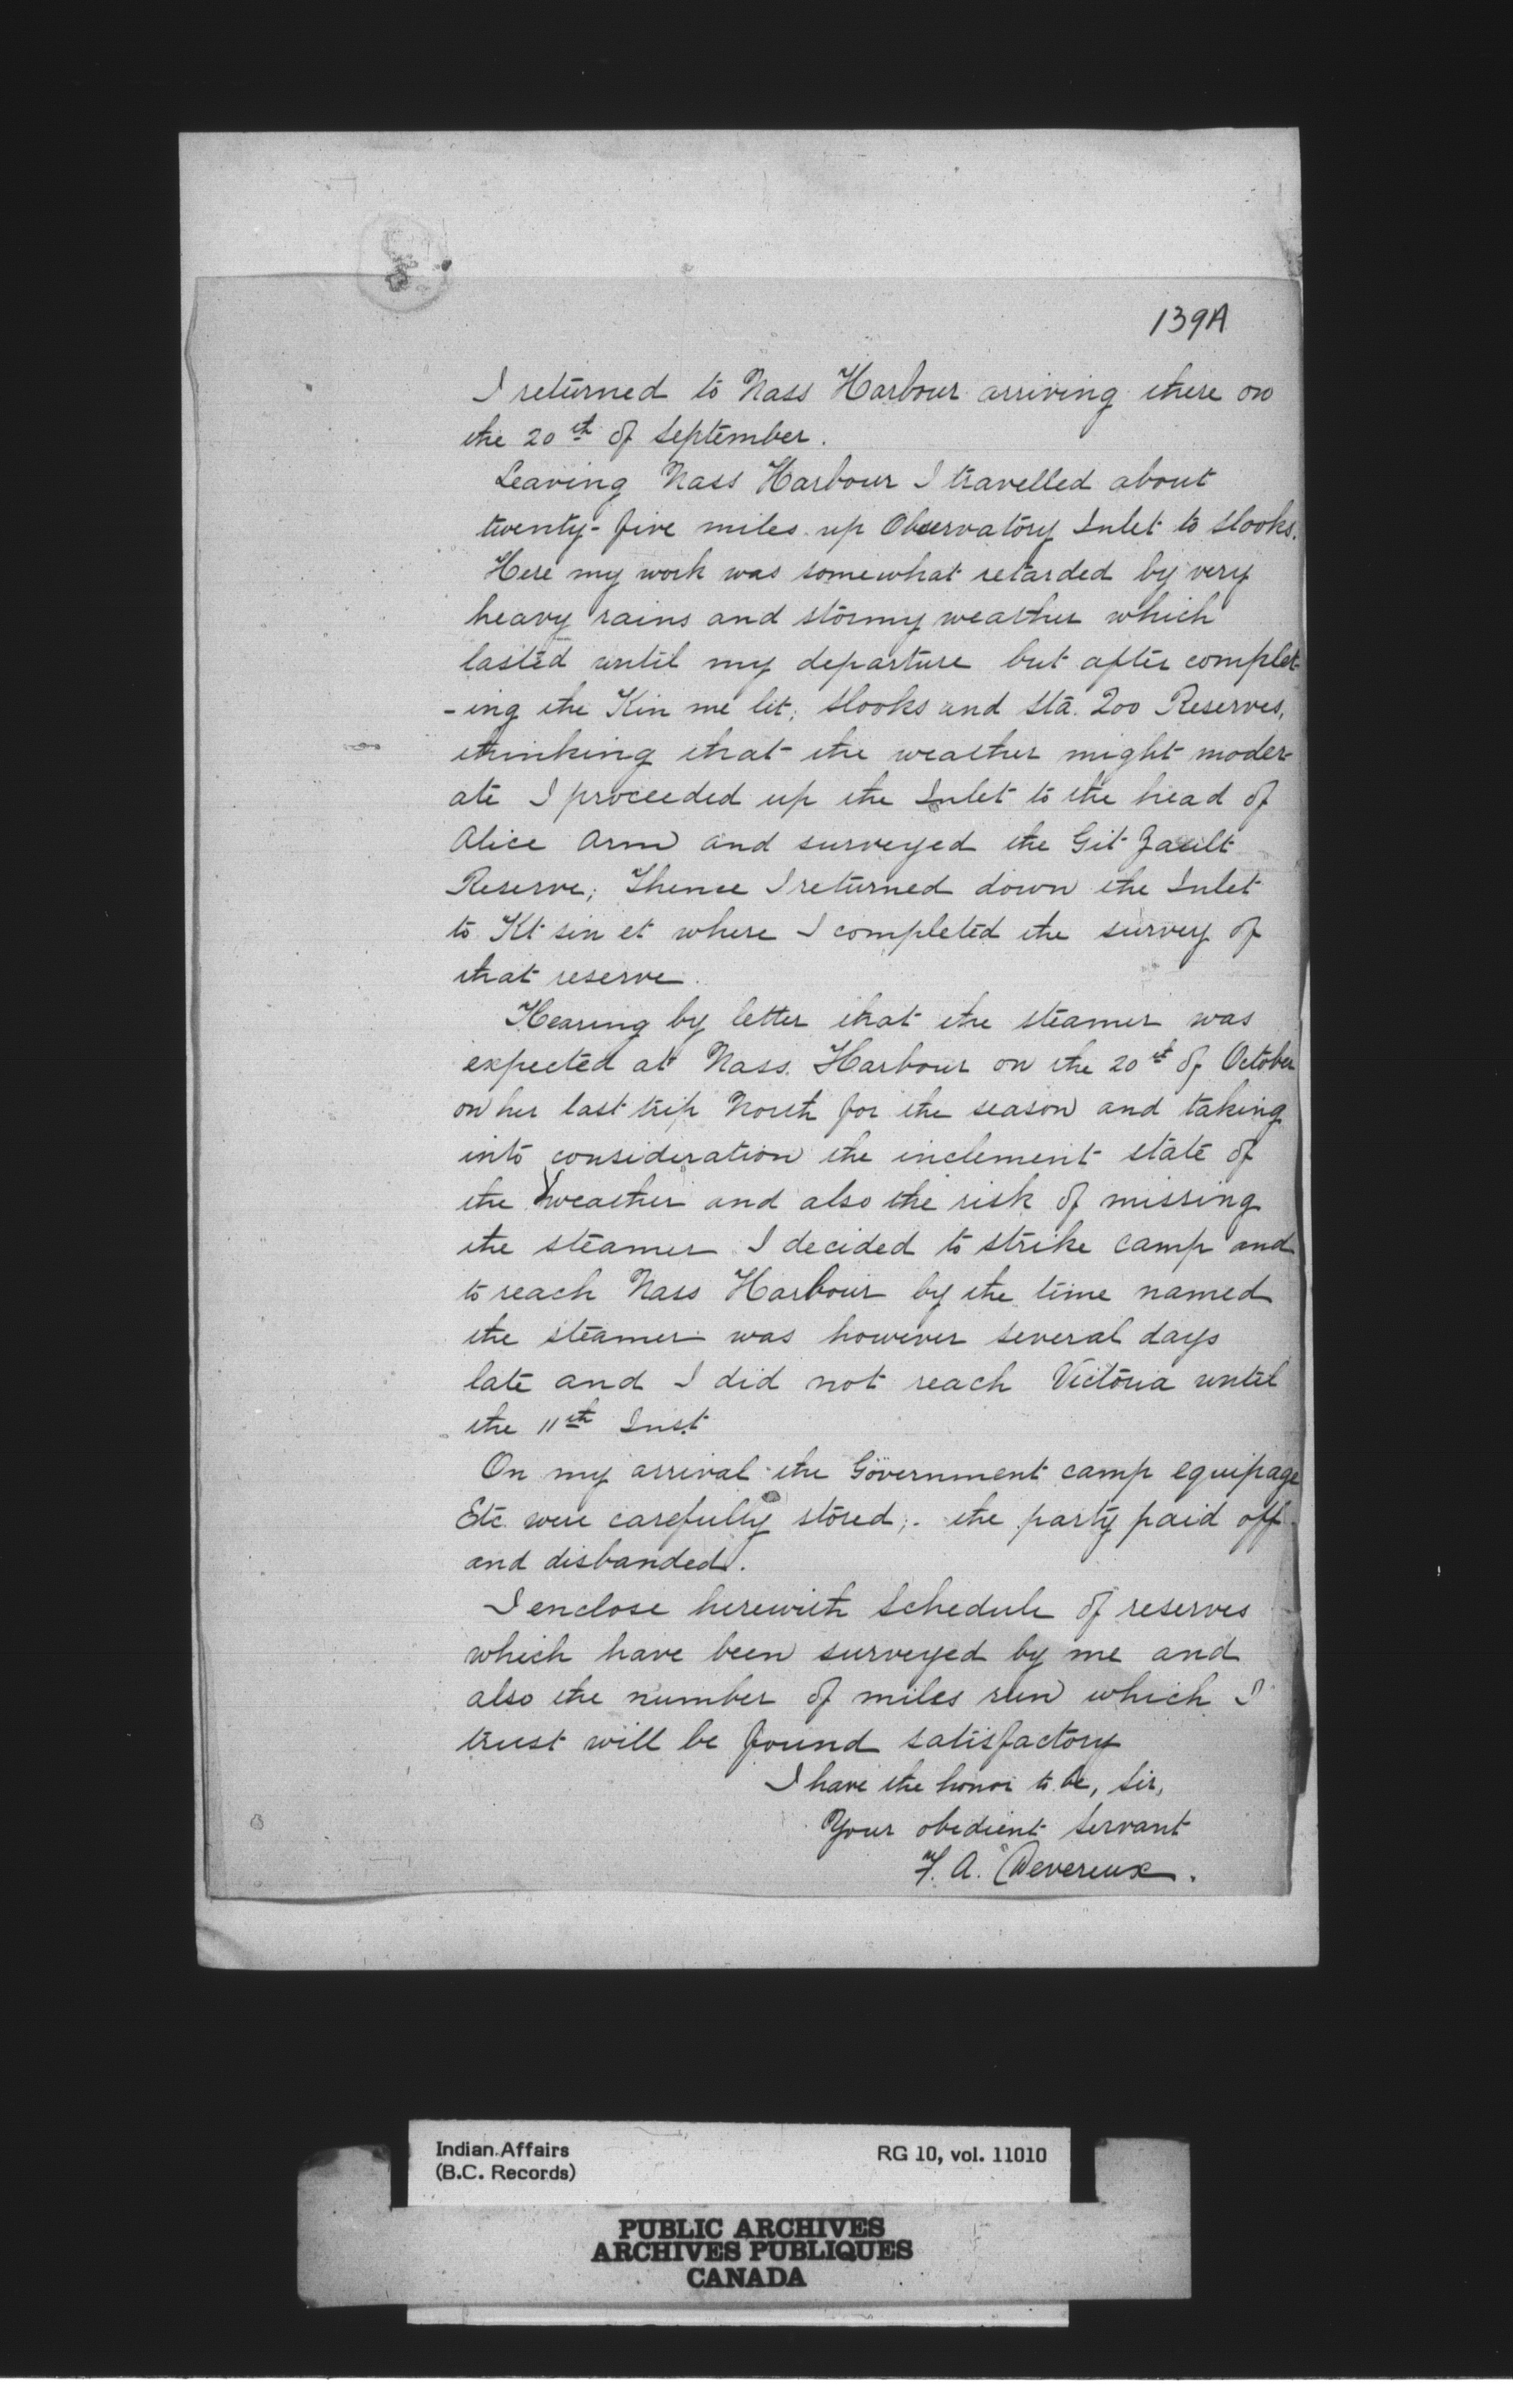 139A
I returned to Nass Harbour arriving there on
the 20th of September.
Leaving Nass Harbour I travelled about
twenty-five miles up Observatory Inlet to Slooks.
Here my work was somewhat retarded by very
heavy rains and stormy weather which
lasted until my departure but after complet-
-ing the Kin me lit; Slooks and Sta. Qoo Reserves,
thinking that the weather might moder-
ate I proceeded up the Inlet to the head of
Alice Arm and surveyed the Git-Zault
Reserve; Thence I returned down the Inlet
to Kt sin et where I completed the survey of
that reserve.
Hearing by letter that the steamer was
expected at Nass Harbour on the 20th of October
on her last trip North for the season and taking
into consideration the inclement state of
the weather and also the risk of missing
the steamer I decided to strike camp and
to reach Nass Harbour by the time named
the steamer was however several days
late and I did not reach Victoria until
the 11th Inst
On my arrival the Government camp equipage
Etc were carefully stored; the party paid off
and disbanded.
I enclose herewith Schedule of reserves
which have been surveyed by me and
also the number of miles run which I
trust will be found satisfactory
I have the honor to be, Sir,
Your obedient Servant
F. A. Devereux.
Indian Affairs
(B.C. Records)
RG 10, vol. 11010
PUBLIC ARCHIVES
ARCHIVES PUBLIQUES
CANADA